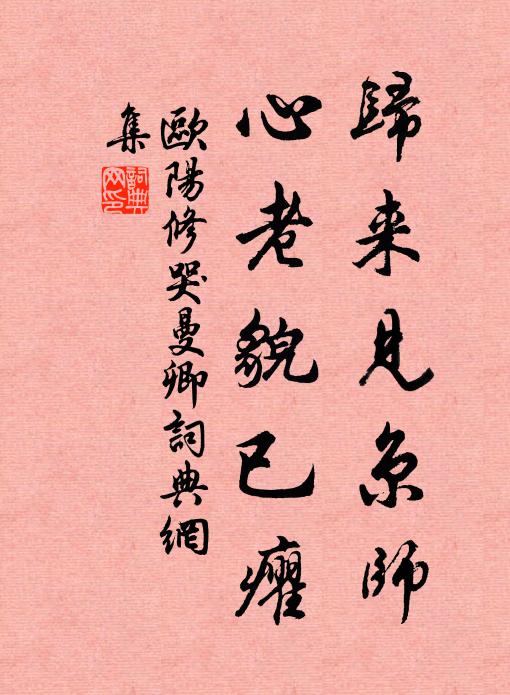 歸来見京師
心老貌已癯
歐陽修哭曼卿詞典網
集
詞典
网印